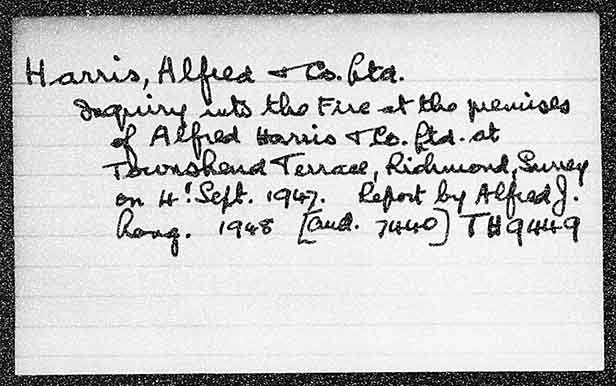 Harris, Alfred & Co. Ltd.
Inquiry into the Fire at the premises
of Alfred Harris & Co. Ltd. at
Townshend Terrace, Richmond, Surrey
on 4: Sept. 1947. Report by Alfred J.
Long. 1948 [Cmd. 7440] TH9449